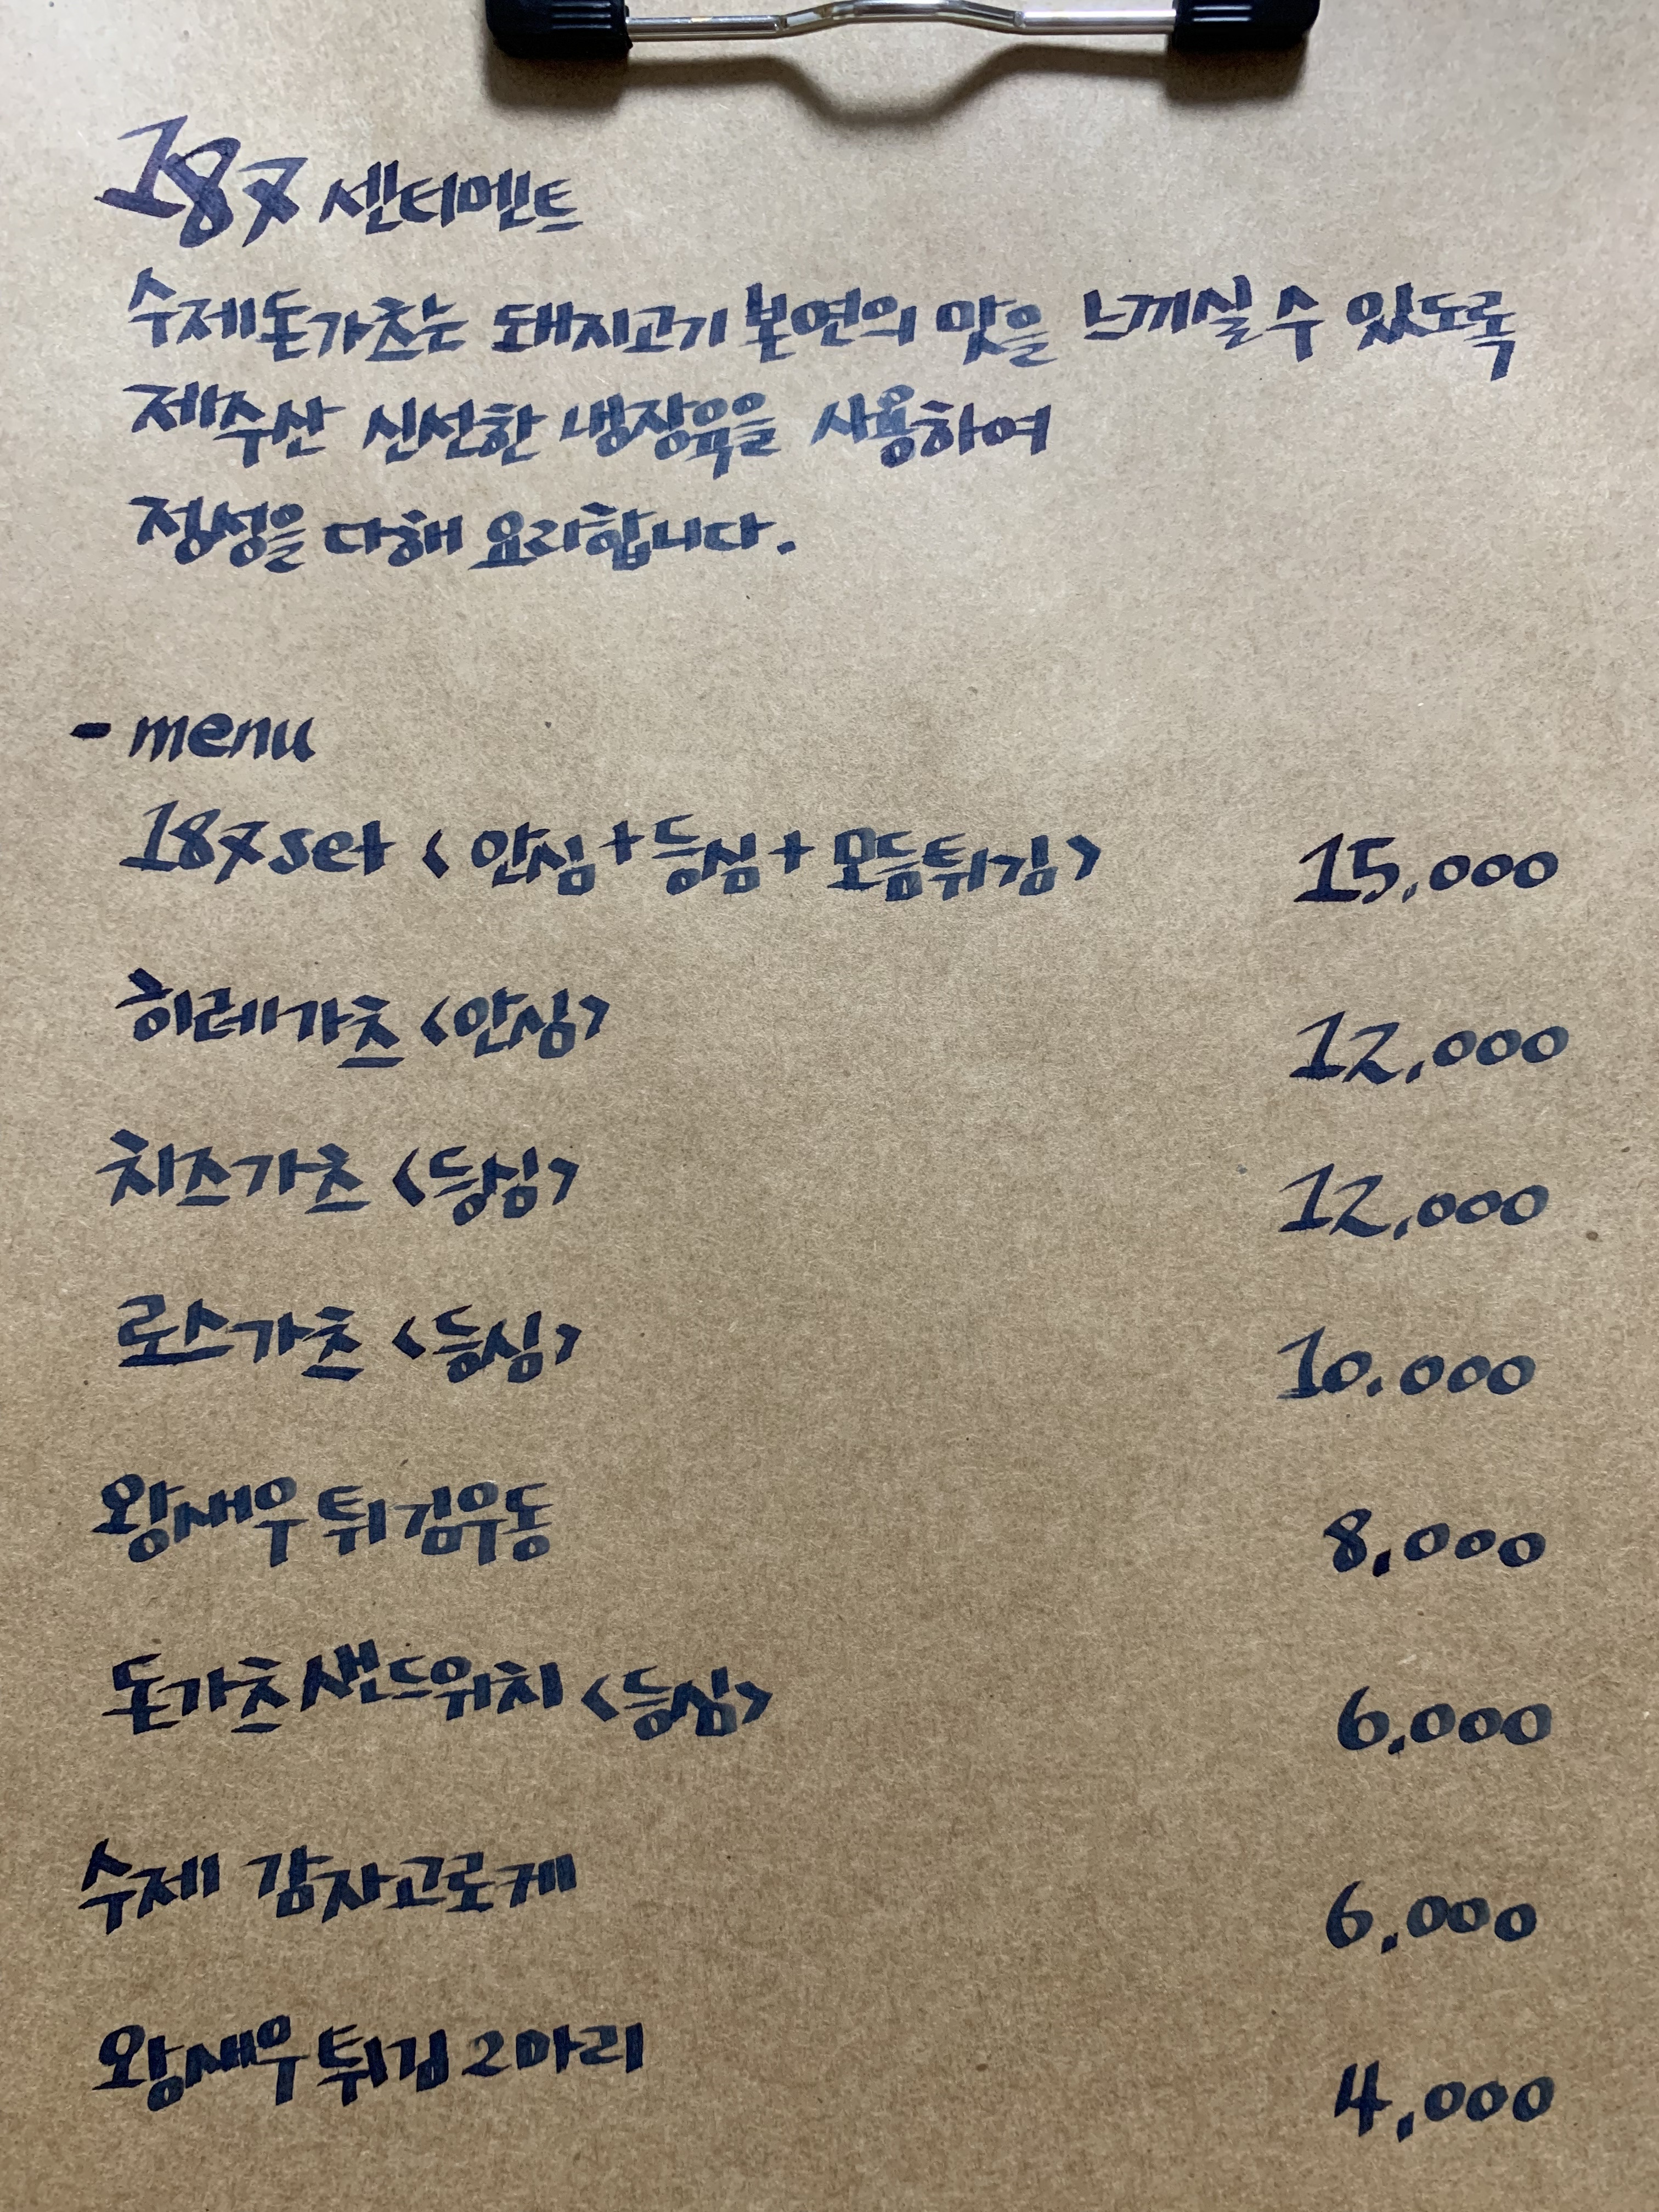 187 센티멘트
수제돈가츠는 돼지고기 본연의 맛을 느끼실 수 있도록
제주산 신선한 냉장육을 사용하여
정성을 다해 요리합니다.
- menu
187 set <안심+등심+모듬튀김> 15,000
히레가츠 <안심> 12,000
치즈가츠 <등심> 12,000
로스가츠 <등심> 10.000
왕새우 튀김우동 8,000
돈가츠 샌드위치 <등심> 6,000
수제 감자고로케 6,000
왕새우 튀김 2마리 4,000